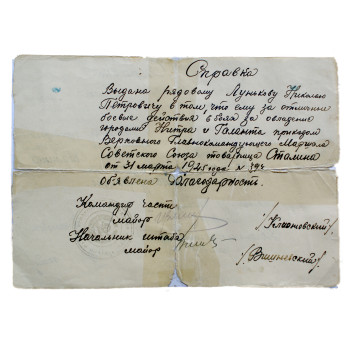 Справка
Выдана рядовому Лунькову Николаю
Петровичу в том, что ему за отличные
боевые действия в боях за овладение
городами Нитра и Галанта приказом
Верховного Главнокомандующего Маршала
Советского Союза товарища Сталина
от 31 марта 1945 года № 324
объявлена Благодарность.
Командир части
майор /Клановский/.
Начальник штаба
майор /Вишневский/.